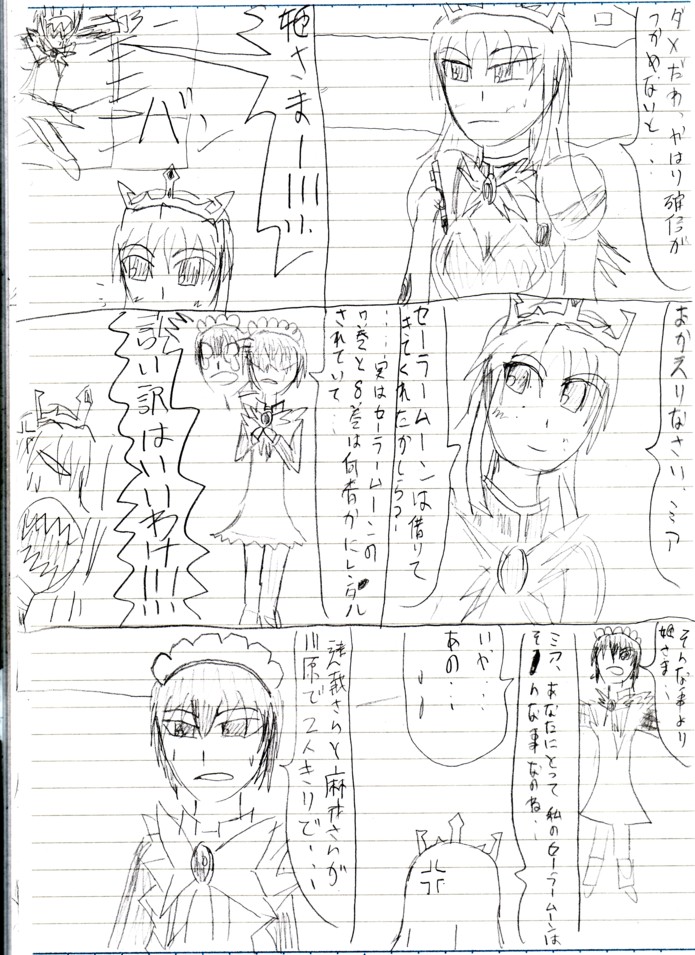 ダメだわ、やはり確信が
つかめないと…
姫さまー!!!!!
バン
おかえりなさい、ミア
セーラームーンは借りて
きてくれたかしら?
……実はセーラームーンの
7巻と8巻は何者かにレンタル
されていて…
言い訳はいいわけ!!!!
そんな事より
姫さま…
ミア、あなたにとって私のセーラームーンは
そんな事なのね…
いや…
あの…
さんと麻井さんが
川原で2人きりで…